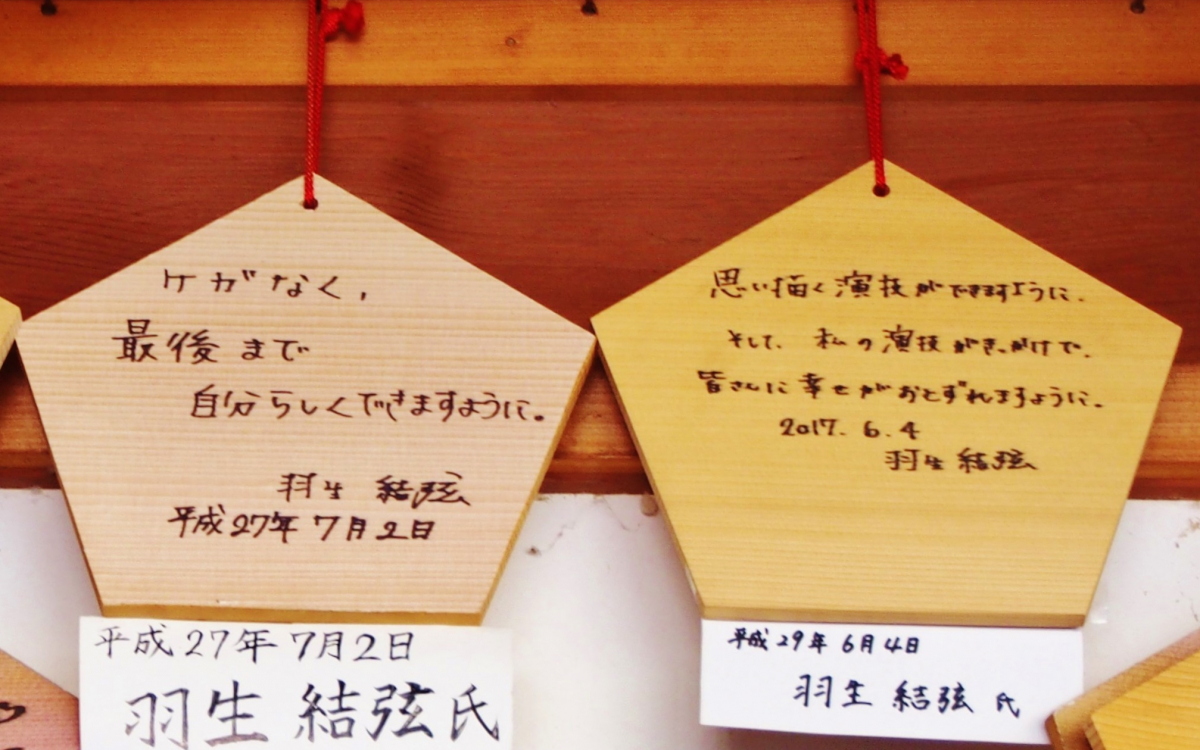 ケガなく,
最後まで
自分らしくできますように。
羽生 結弦
平成27年 7月2日
平成27年 7月2日
羽生 結弦 氏
思い描く演技ができますように.
そして、私の演技がきっかけで、
皆さんに幸せがおとずれますように。
2017. 6. 4
羽生 結弦
平成 29年 6月4日
羽生 結弦 氏